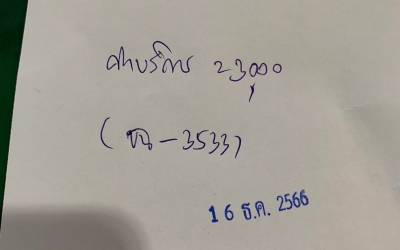 ค่าบริการ 23,000
(ฆฉ-3533)
16 ธ.ค. 2566